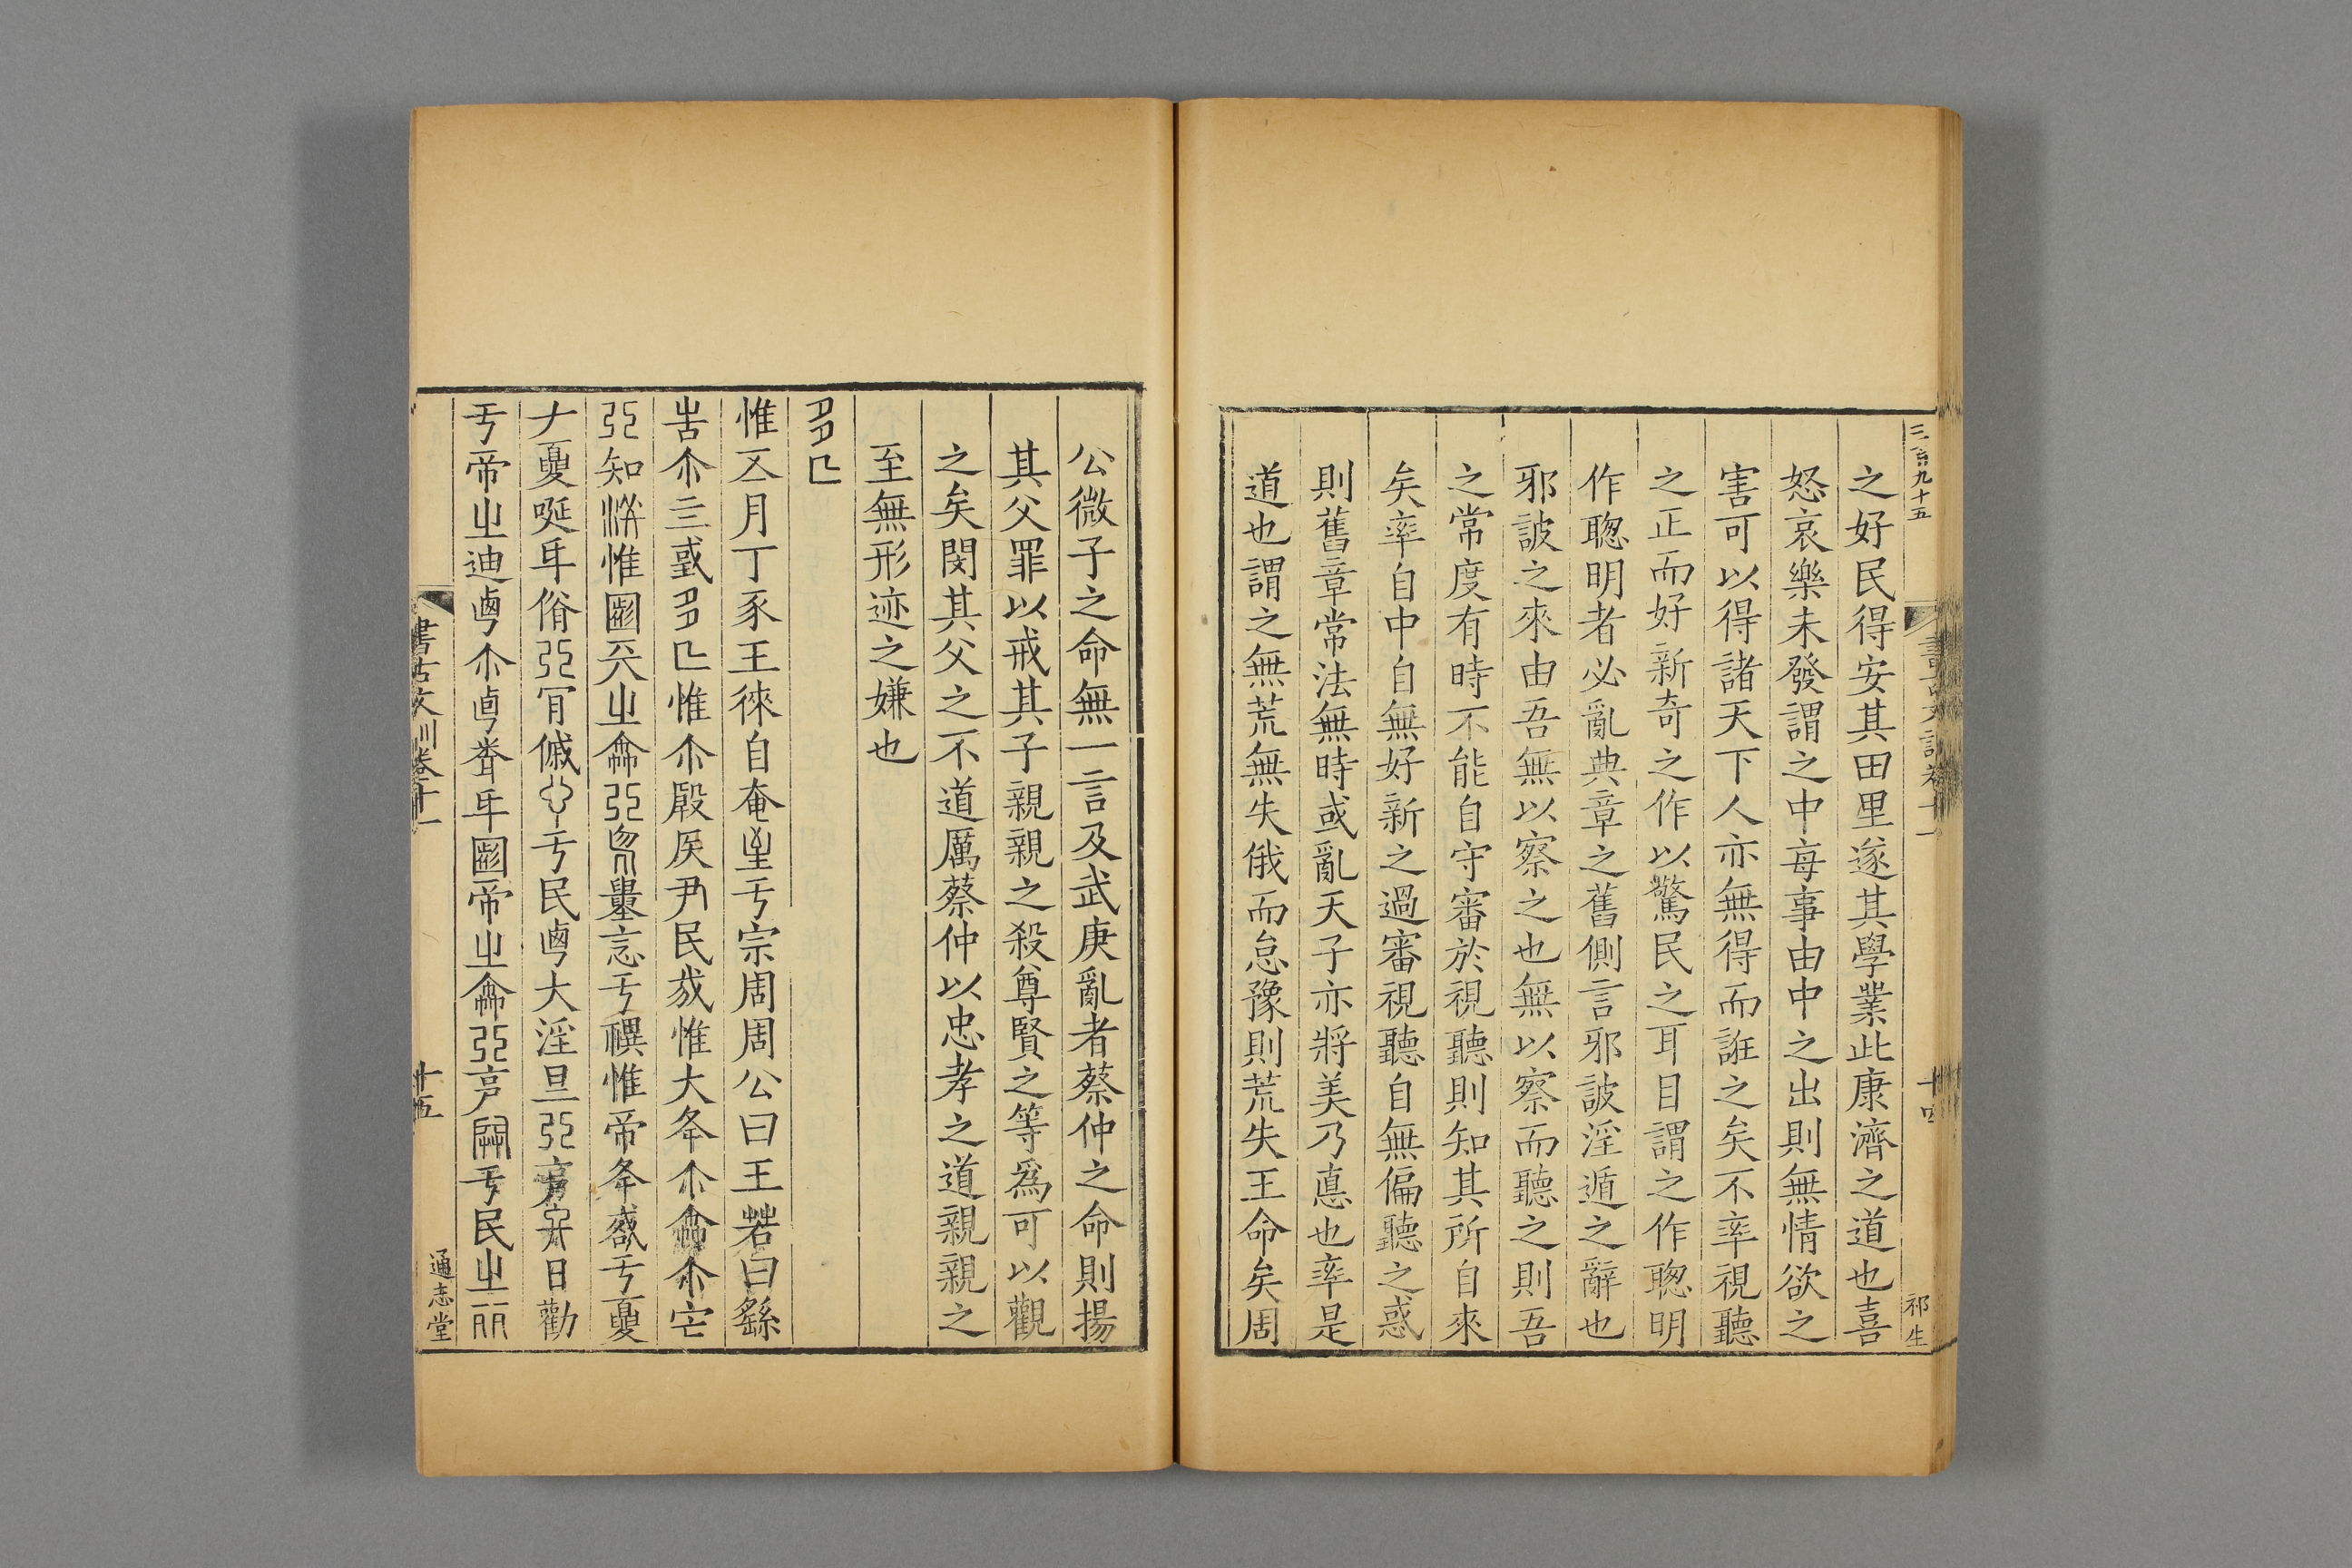 三百九十五
祁生
之好民得安其田里遂其學業此康濟之道也喜
怒哀樂未發謂之中每事由中之出則無情欲之
害可以得諸天下人亦無得而誑之矣不率視聽
之正而好新奇之作以驚民之耳目謂之作聦明
作聦明者必亂典章之舊側言邪詖淫遁之辭也
邪詖之來由吾無以察之也無以察而聽之則吾
之常度有時不能自守審於視聽則知其所自來
矣率自中自無好新之過審視聽自無偏聽之惑
則舊章常法無時或亂天子亦將美乃悳也率是
道也謂之無荒無失俄而怠豫則荒失王命矣周
公微子之命無一言及武庚亂者蔡仲之命則揚
其父罪以戒其子親親之殺尊賢之等爲可以觀
之矣閔其父之不道厲蔡仲以忠孝之道親親之
至無形迹之嫌也
惟五月丁亥王徠自奄𡉟亐宗周周公曰王若曰繇
惟尒殷侯尹民惟大夅尒命尒
知惟圖天㞢命忘亐惟帝夅亐
誕民大淫日勸
亐帝㞢迪尒圖帝㞢命亐民㞢丽
書古文訓卷十一
十五
通志堂